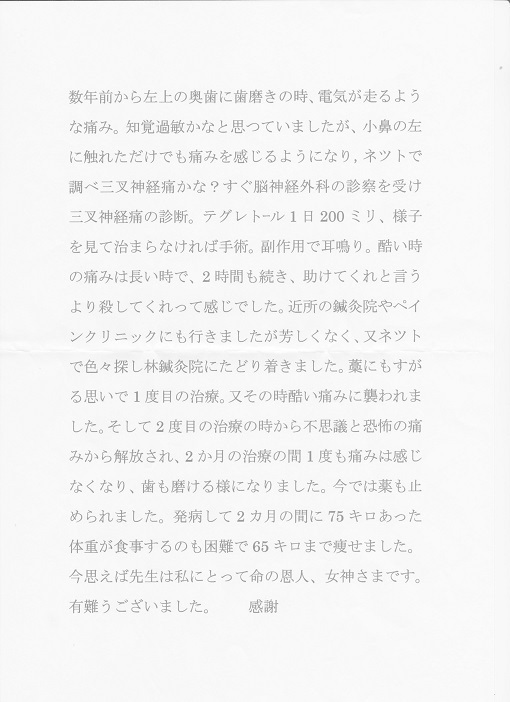 数年前から左上の奥歯に歯磨きの時、電気が走るよう
な痛み。知覚過敏かなと思つていましたが、小鼻の左
に触れただけでも痛みを感じるようになり,ネツトで
調べ三叉神経痛かな？すぐ脳神経外科の診察を受け
三叉神経痛の診断。テグレトール1日200ミリ、様子
を見て治まらなければ手術。副作用で耳鳴り。酷い時
の痛みは長い時で、2時間も続き、助けてくれと言う
より殺してくれって感じでした。近所の鍼灸院やペイ
ンクリニックにも行きましたが芳しくなく、又ネツト
で色々探し林鍼灸院にたどり着きました。藁にもすが
る思いで1度目の治療。又その時酷い痛みに襲われま
した。そして2度目の治療の時から不思議と恐怖の痛
みから解放され、2か月の治療の間1度も痛みは感じ
なくなり、歯も磨ける様になりました。今では薬も止
められました。発病して2カ月の間に75キロあった
体重が食事するのも困難で65キロまで痩せました。
今思えば先生は私にとって命の恩人、女神さまです。
有難うございました。　　感謝